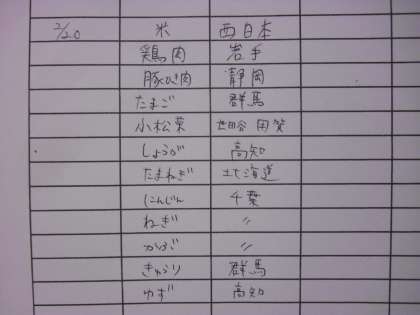 2/20 米 西日本
鶏肉 岩手
豚ひき肉 静岡
たまご 群馬
小松菜 世田谷 用賀
しょうが 高知
たまねぎ 北海道
にんじん 千葉
ねぎ 〃
かぶ 〃
きゅうり 群馬
ゆず 高知